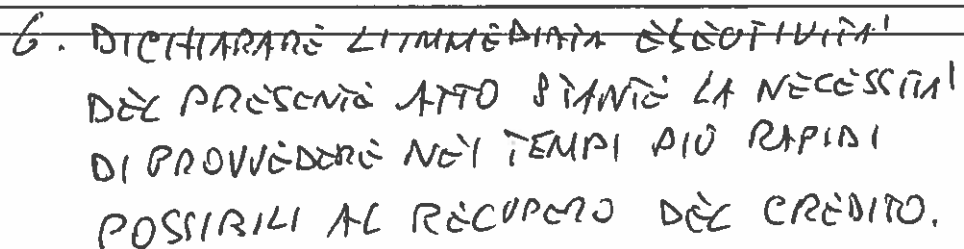 6. DICHIARARE L'IMMEDIATA ESECUTIVITA'
DEL PRESENTE ATTO STANTE LA NECESSITA'
DI PROVVEDERE NEI TEMPI PIÙ RAPIDI
POSSIBILI AL RECUPERO DEL CREDITO.